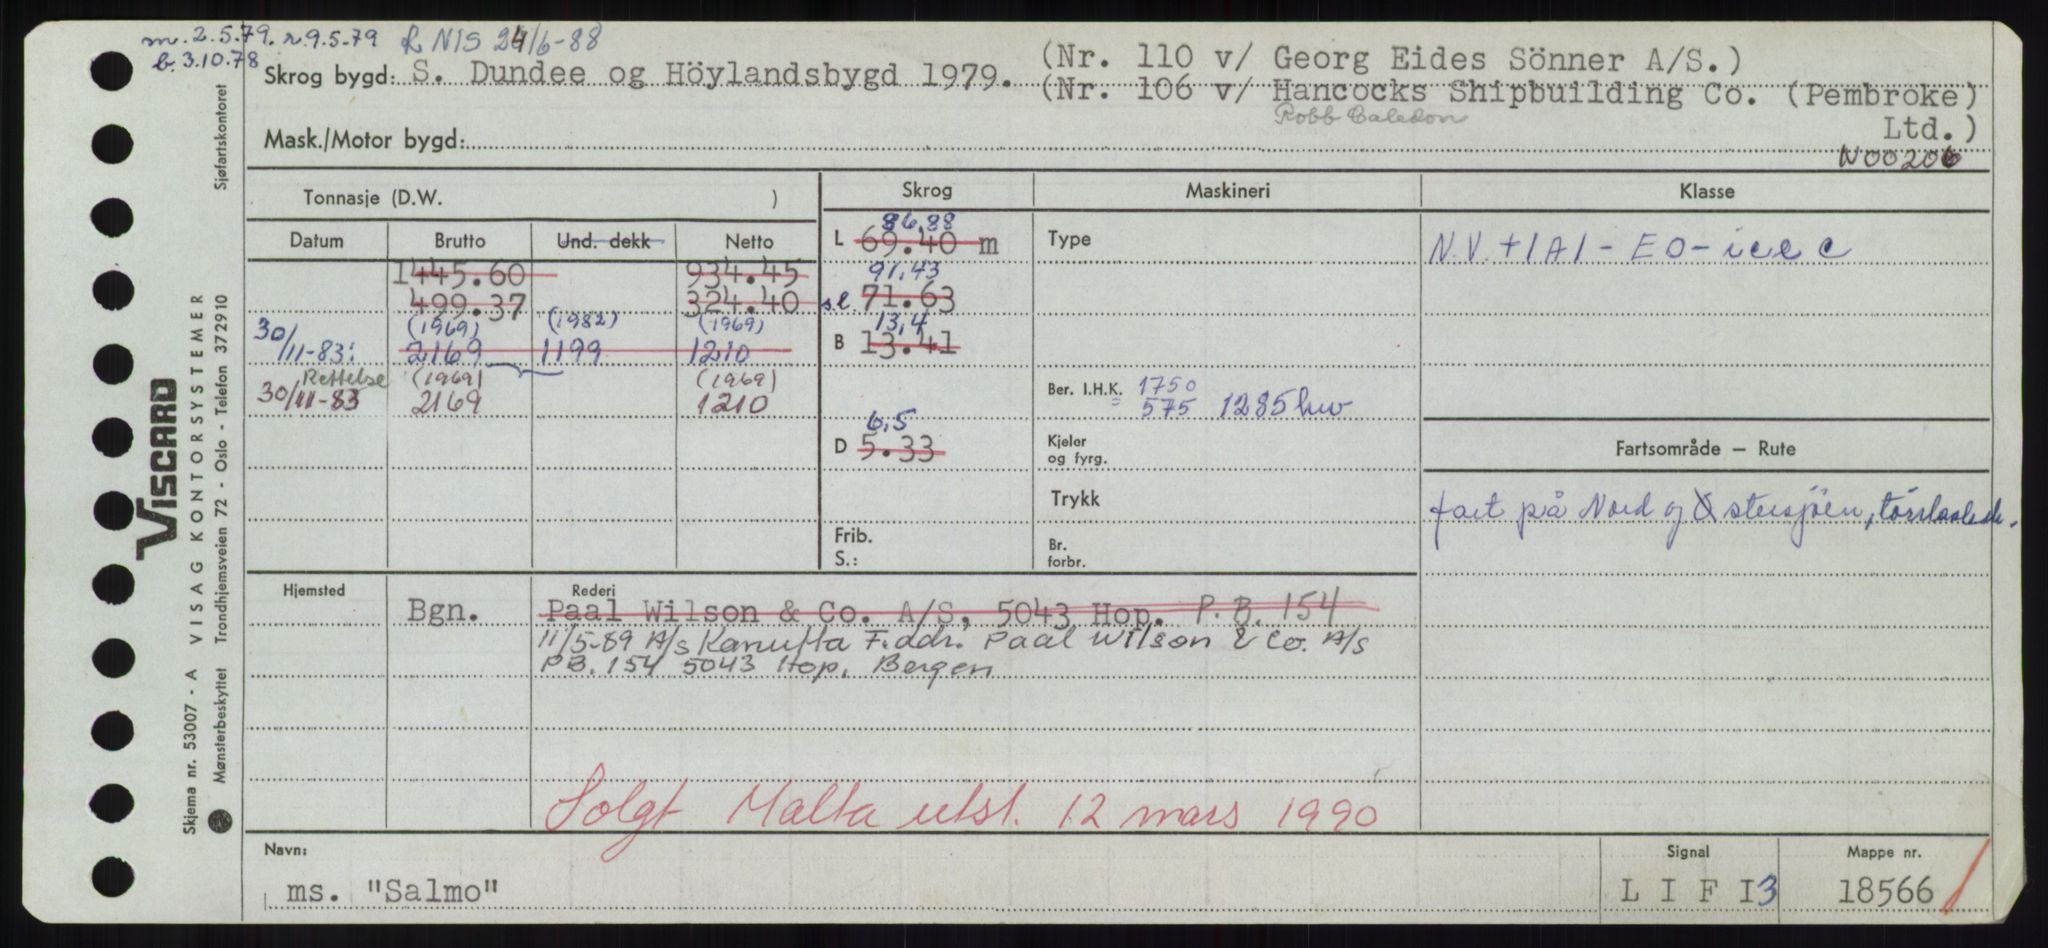 m. 2.5.79. r.9.5-79 R NIS 24/6-88
b. 3.10.78
Skrog bygd: S. Dundee og Höylandsbygd 1979. (Nr. 110 v/ Georg Eides Sönner A/S.)
(Nr. 106 v/ Hancocks Shipbuilding Co. (Pembroke)
Robb Caledon
Ltd.)
Mask./Motor bygd:
N00206
Tonnasje (D.W. )
Skrog
Maskineri
Klasse
Datum Brutto Und. dekk Netto
L 69.40 m
86,88
Type
N.V. +1A1 - EO - ice C
1445.60 934.45
91,43
499.37 324.40
s.l 71.63
(1969) (1982) (1969)
13,4
30/11-83: 2169 1199 1210
B 13.41
Rettelse (1969) (1969)
30/11-83 2169 1210
Ber. I.H.K. 1750
575 1285 kw
6,5
D 5.33
Kjeler
og fyrg.
Fartsområde — Rute
Trykk
fart på Nord og Østersjöen, törrlastsk.
Frib.
S.:
Br.
forbr.
Hjemsted
Rederi
Bgn.
Paal Wilson & Co. A/S, 5043 Hop. P.B. 154
11/5-89 A/s Kanutta F. adr. Paal Wilson & Co. A/s
PB. 154 5043 Hop, Bergen
Solgt Malta utst. 12 mars 1990
Navn:
ms. "Salmo"
Signal
L I F I 3
Mappe nr.
18566
VISCARD
Skjema nr. 53007 - A VISAG KONTORSYSTEMER Sjøfartskontoret
Mønsterbeskyttet Trondhjemsveien 72 - Oslo - Telefon 372910